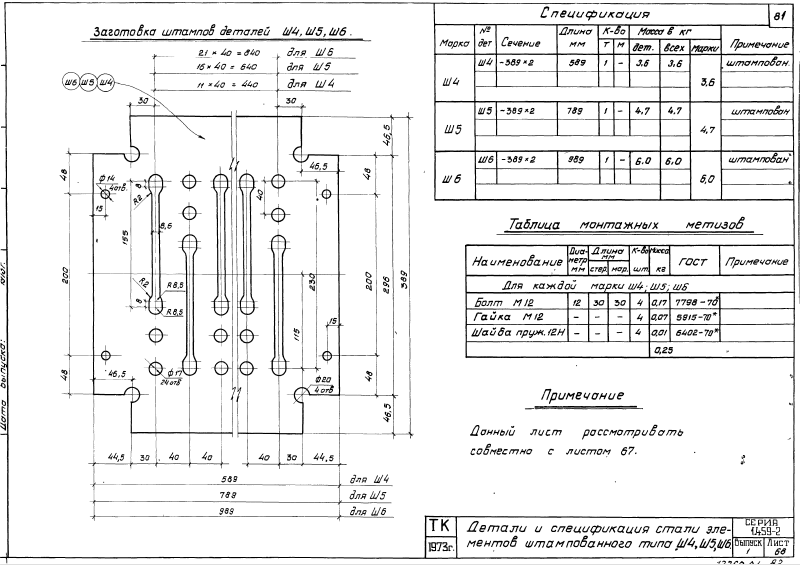 Заготовка штампов деталей Ш4, Ш5, Ш6.
21 × 40 = 840 для Ш6
16 × 40 = 640 для Ш5
11 × 40 = 440 для Ш4
Ш6 Ш5 Ш4
30 30
46,5
46,5
48 48
ф14
4 отв.
15
8
R2
8,6
40
155
200 230 200 296 389
R2
R8,5
8
R8,5
115
15
48 48
46,5
ф17
24 отв
ф20
4 отв
46,5
44,5 30 40 40 40 30 44,5
589 для Ш4
789 для Ш5
989 для Ш6
Дата выпуска:
Спецификация 81
Марка № дет Сечение Длина мм К-во Масса в кг Примечание
т н дет. всех марки
Ш4 Ш4 -389×2 589 1 - 3,6 3,6 3,6 штампован.
Ш5 Ш5 -389×2 789 1 - 4,7 4,7 4,7 штампован
Ш6 Ш6 -389×2 989 1 - 6,0 6,0 6,0 штампован
Таблица монтажных метизов
Наименование Диаметр мм Длина мм К-во шт. Масса кг ГОСТ Примечание
стер. нар.
Для каждой марки Ш4; Ш5; Ш6
Болт М12 12 30 30 4 0,17 7798-70*
Гайка М12 - - - 4 0,07 5915-70*
Шайба пруж. 12Н - - - 4 0,01 6402-70*
0,25
Примечание
Данный лист рассматривать
совместно с листом 67.
ТК
1973г.
Детали и спецификация стали эле-
ментов штампованного типа Ш4, Ш5, Ш6
СЕРИЯ
1.459-2
Выпуск Лист
1 68